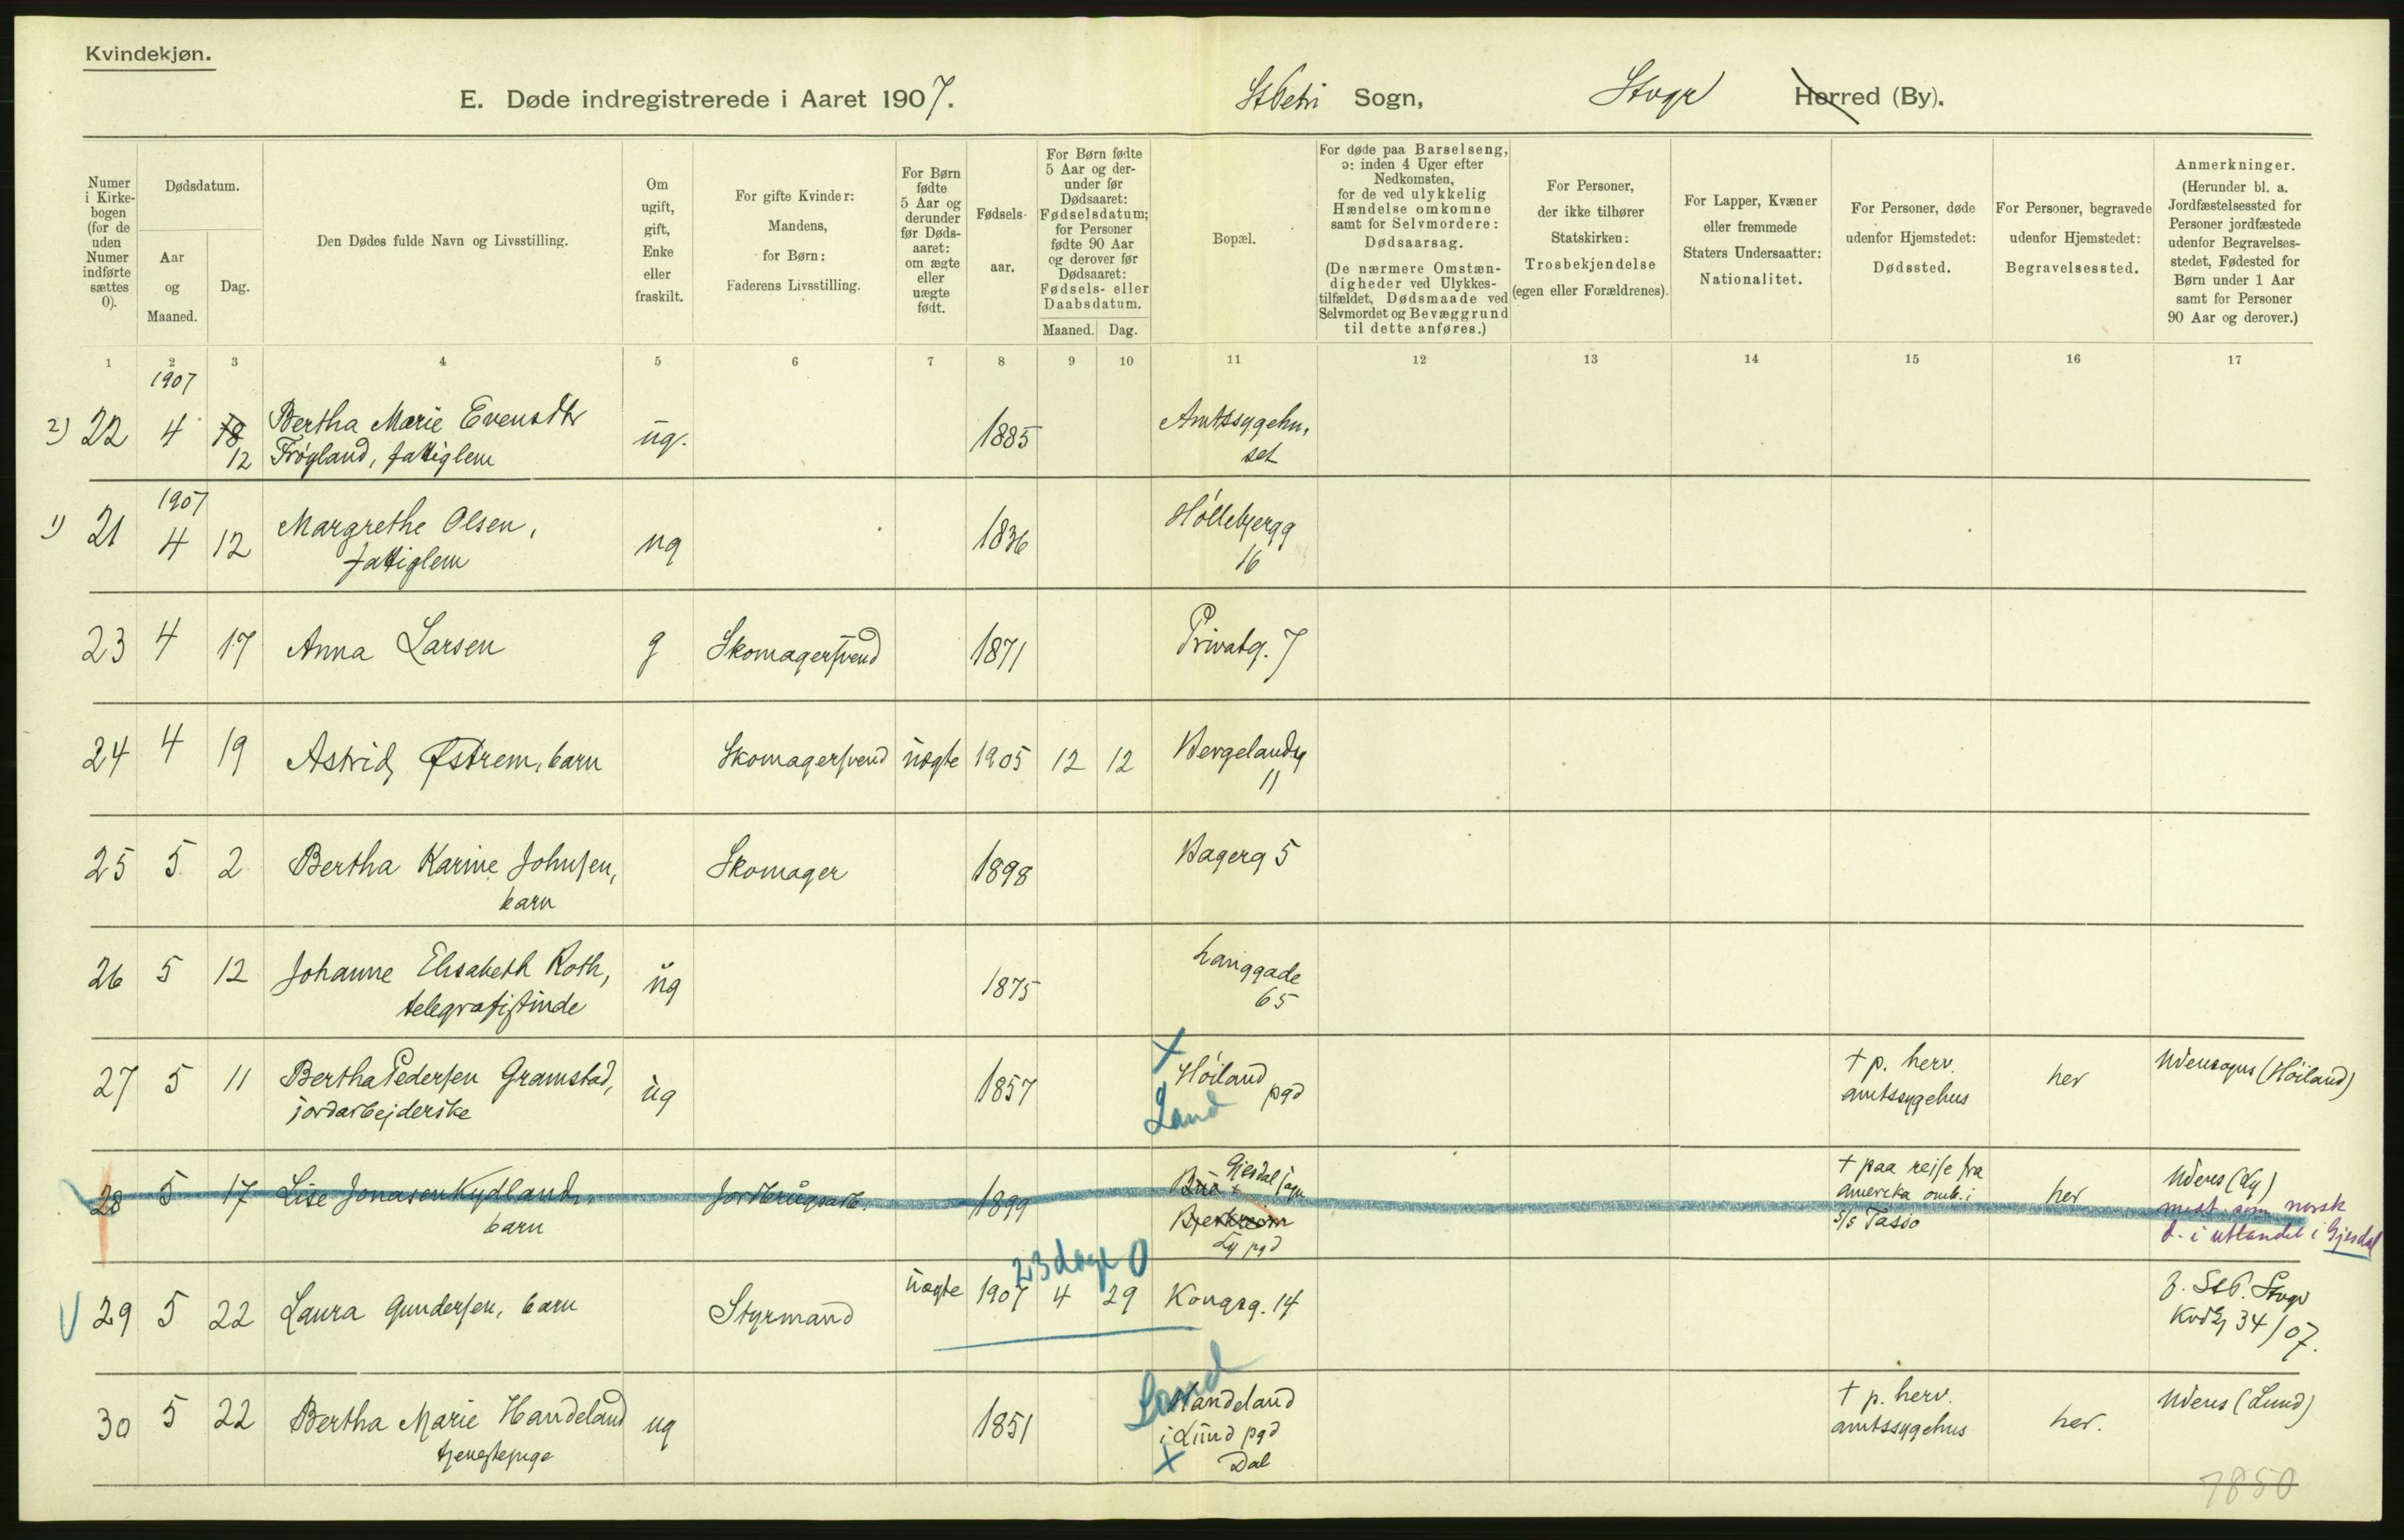 Kvindekjøn.
E. Døde indregistrerede i Aaret 1907.
St Petri Sogn,
Stvgr Herred (By).
Numer i Kirkebogen (for de uden Numer indførte sættes 0).
Dødsdatum.
Aar og Maaned.
Dag.
Den Dødes fulde Navn og Livsstilling.
Om ugift, gift, Enke eller fraskilt.
For gifte Kvinder: Mandens, for Børn: Faderens Livsstilling.
For Børn fødte 5 Aar og derunder før Dødsaaret: om ægte eller uægte født.
Fødselsaar.
For Børn fødte 5 Aar og derunder før Dødsaaret: Fødselsdatum; for Personer fødte 90 Aar og derover før Dødsaaret: Fødsels- eller Daabsdatum.
Maaned. Dag.
Bopæl.
For døde paa Barselseng, ɔ: inden 4 Uger efter Nedkomsten, for de ved ulykkelig Hændelse omkomne samt for Selvmordere: Dødsaarsag.
(De nærmere Omstændigheder ved Ulykkestilfældet, Dødsmaade ved Selvmordet og Bevæggrund til dette anføres.)
For Personer, der ikke tilhører Statskirken: Trosbekjendelse (egen eller Forældrenes).
For Lapper, Kvæner eller fremmede Staters Undersaatter: Nationalitet.
For Personer, døde udenfor Hjemstedet: Dødssted.
For Personer, begravede udenfor Hjemstedet: Begravelsessted.
Anmerkninger.
(Herunder bl. a. Jordfæstelsessted for Personer jordfæstede udenfor Begravelsesstedet, Fødested for Børn under 1 Aar samt for Personer 90 Aar og derover.)
1 2 3 4 5 6 7 8 9 10 11 12 13 14 15 16 17
1907
2) 22 4 18 Bertha Marie Evensdtr ug. 1885 Amtssygehu,
12 Frøyland, fattiglem set
1907
1) 21 4 12 Margrethe Olsen, ug 1836 Hóllebjergg
fattiglem 16
23 4 17 Anna Larsen g Skomagersvend 1871 Privatg. 7
24 4 19 Astrid Østrem, barn Skomagersvend uægte 1905 12 12 Bergelandsg
11
25 5 2 Bertha Karine Johnsen, Skomager 1898 Bagerg 5
barn
26 5 12 Johanne Elisabeth Roth, ug 1875 Langgade
telegrafistinde 65
27 5 11 Bertha Pedersen Gramstad, ug 1857 Høiland pgd † p. herv. her Udensogns (Høiland)
jordarbejderske Land amtssygehus
28 5 17 Lise Jonasen Kydland, Jordbrugsarb. 1899 Gjesdal sogn † paa reise fra her Udens (Ly)
barn Bjerkreim amerika omb. i
Ly pgd s/s Tasso
medt. som norsk
d. i utlandet i Gjesdal
23 dage 0
29 5 22 Laura Gundersen, barn Styrmand uægte 1907 4 29 Kongsg. 14 f. StP. Stvgr
34/07.
Lund
30 5 22 Bertha Marie Handeland ug 1851 Handeland † p. herv. her. Udens (Lund)
tjenestepige i Lund pgd amtssygehus
Dal
7850